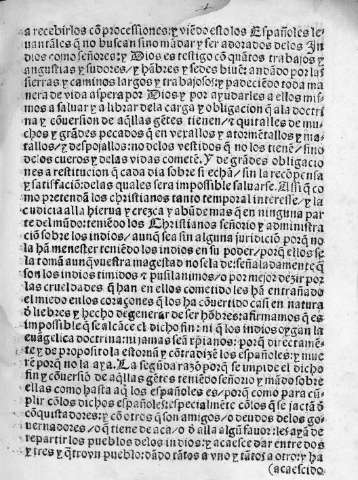 a recebirlos cõ processiones: y viẽdo esto los Españoles le
uantãles q̃ no buscan sino mãdar y ser adorados delos In
dios como señores: y Dios es testigo cõ quãtos trabajos y
angustias y sudores/ y hãbres y sedes biuẽ: andãdo por las
sierras y caminos largos y trabajosos: y padeciẽdo toda ma
nera de vida aspera por Dios y por ayudarles a ellos mis
mos a saluar y a librar dela carga y obligacion q̃ ala doctri
na y cõuersion de aq̃llas gẽtes tienen/ y quitalles de mu
chos y grãdes pecados q̃ en vexallos y atormẽtallos y ma
tallos/ y despojallos: no delos vestidos q̃ no los tienẽ/ sino
delos cueros y delas vidas cometẽ. Y de grãdes obligacio
nes a restitucion q̃ cada dia sobre si echã/ sin la recõpensa
y satisfaciõ: delas quales sera impossible saluarse. Assi q̃ co
mo pretendã los christianos tanto temporal interesse/ y la
cudicia alla hierua y crezca y abũde mas q̃ en ninguna par
te del mũdo: teniẽdo los Christianos señorio y administra
ciõ sobre los indios/ aunq̃ sea sin alguna juridiciõ porq̃ no
la hã menester teniẽdo los indios en su poder/ porq̃ ellos se
la tomã aunq̃ vuestra magestad no sela de: señaladamente q̃
son los indios timidos y pusilaninos/ o por mejor dezir por
las crueldades q̃ han en ellos cometido les hã entrañado
el miedo en los coraçones q̃ los ha cõuertido casi en natura
ð liebres y hecho degenerar de ser hõbres: affirmamos que es
impossible q̃ se alcãce el dicho fin: ni q̃ los indios oygan la
euãgelica doctrina: ni jamas seã xp̃ianos: porq̃ directamẽ
te y de proposito la estornã y cõtradizẽ los españoles: y mue
rẽ porq̃ no la aya. La segũda razõ porq̃ se impide el dicho
fin y cõuersiõ de aq̃llas gẽtes teniẽdo señorio y mãdo sobre
ellas como hasta aq̃ los españoles es/ porq̃ como para cũ
plir cõlos dichos españoles: especialmẽte cõlos q̃ se jactã ð
cõquistadores: y cõ otros q̃ son amigos/ o deudos delos go
uernadores/ o q̃ tiene de aca/ o ð alla algũ fauor: les aya de
repartir los pueblos delos indios: y acaesce dar entre dos
y tres y q̃tro vn pueblo: dãdo tãtos a vno y tãtos a otro: y ha
(acaescido